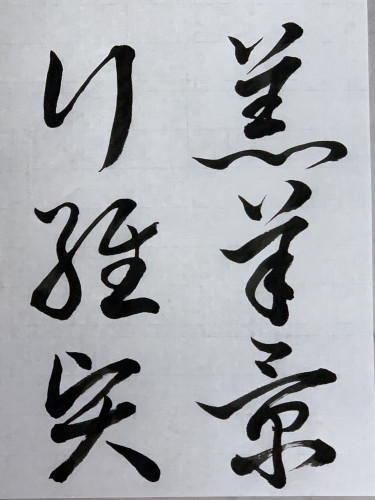 羔羊景
行維賢